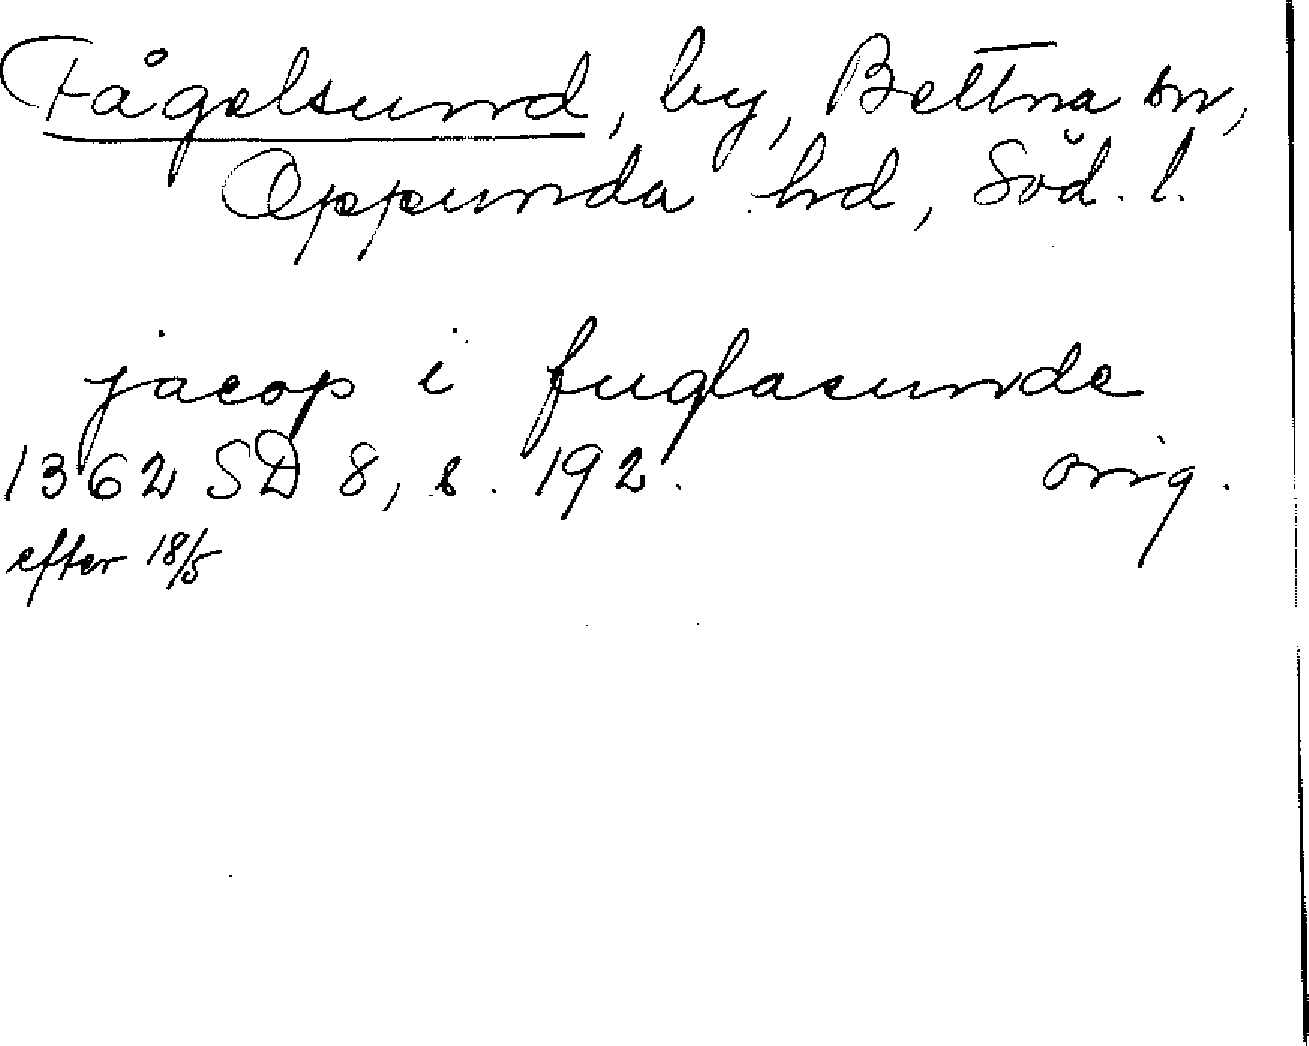 Fågelsund, by, Bettna sn,
Oppunda hd, Söd. l.
jacop i fuglasunde
1362 SD 8, s. 192. orig.
efter 18/5